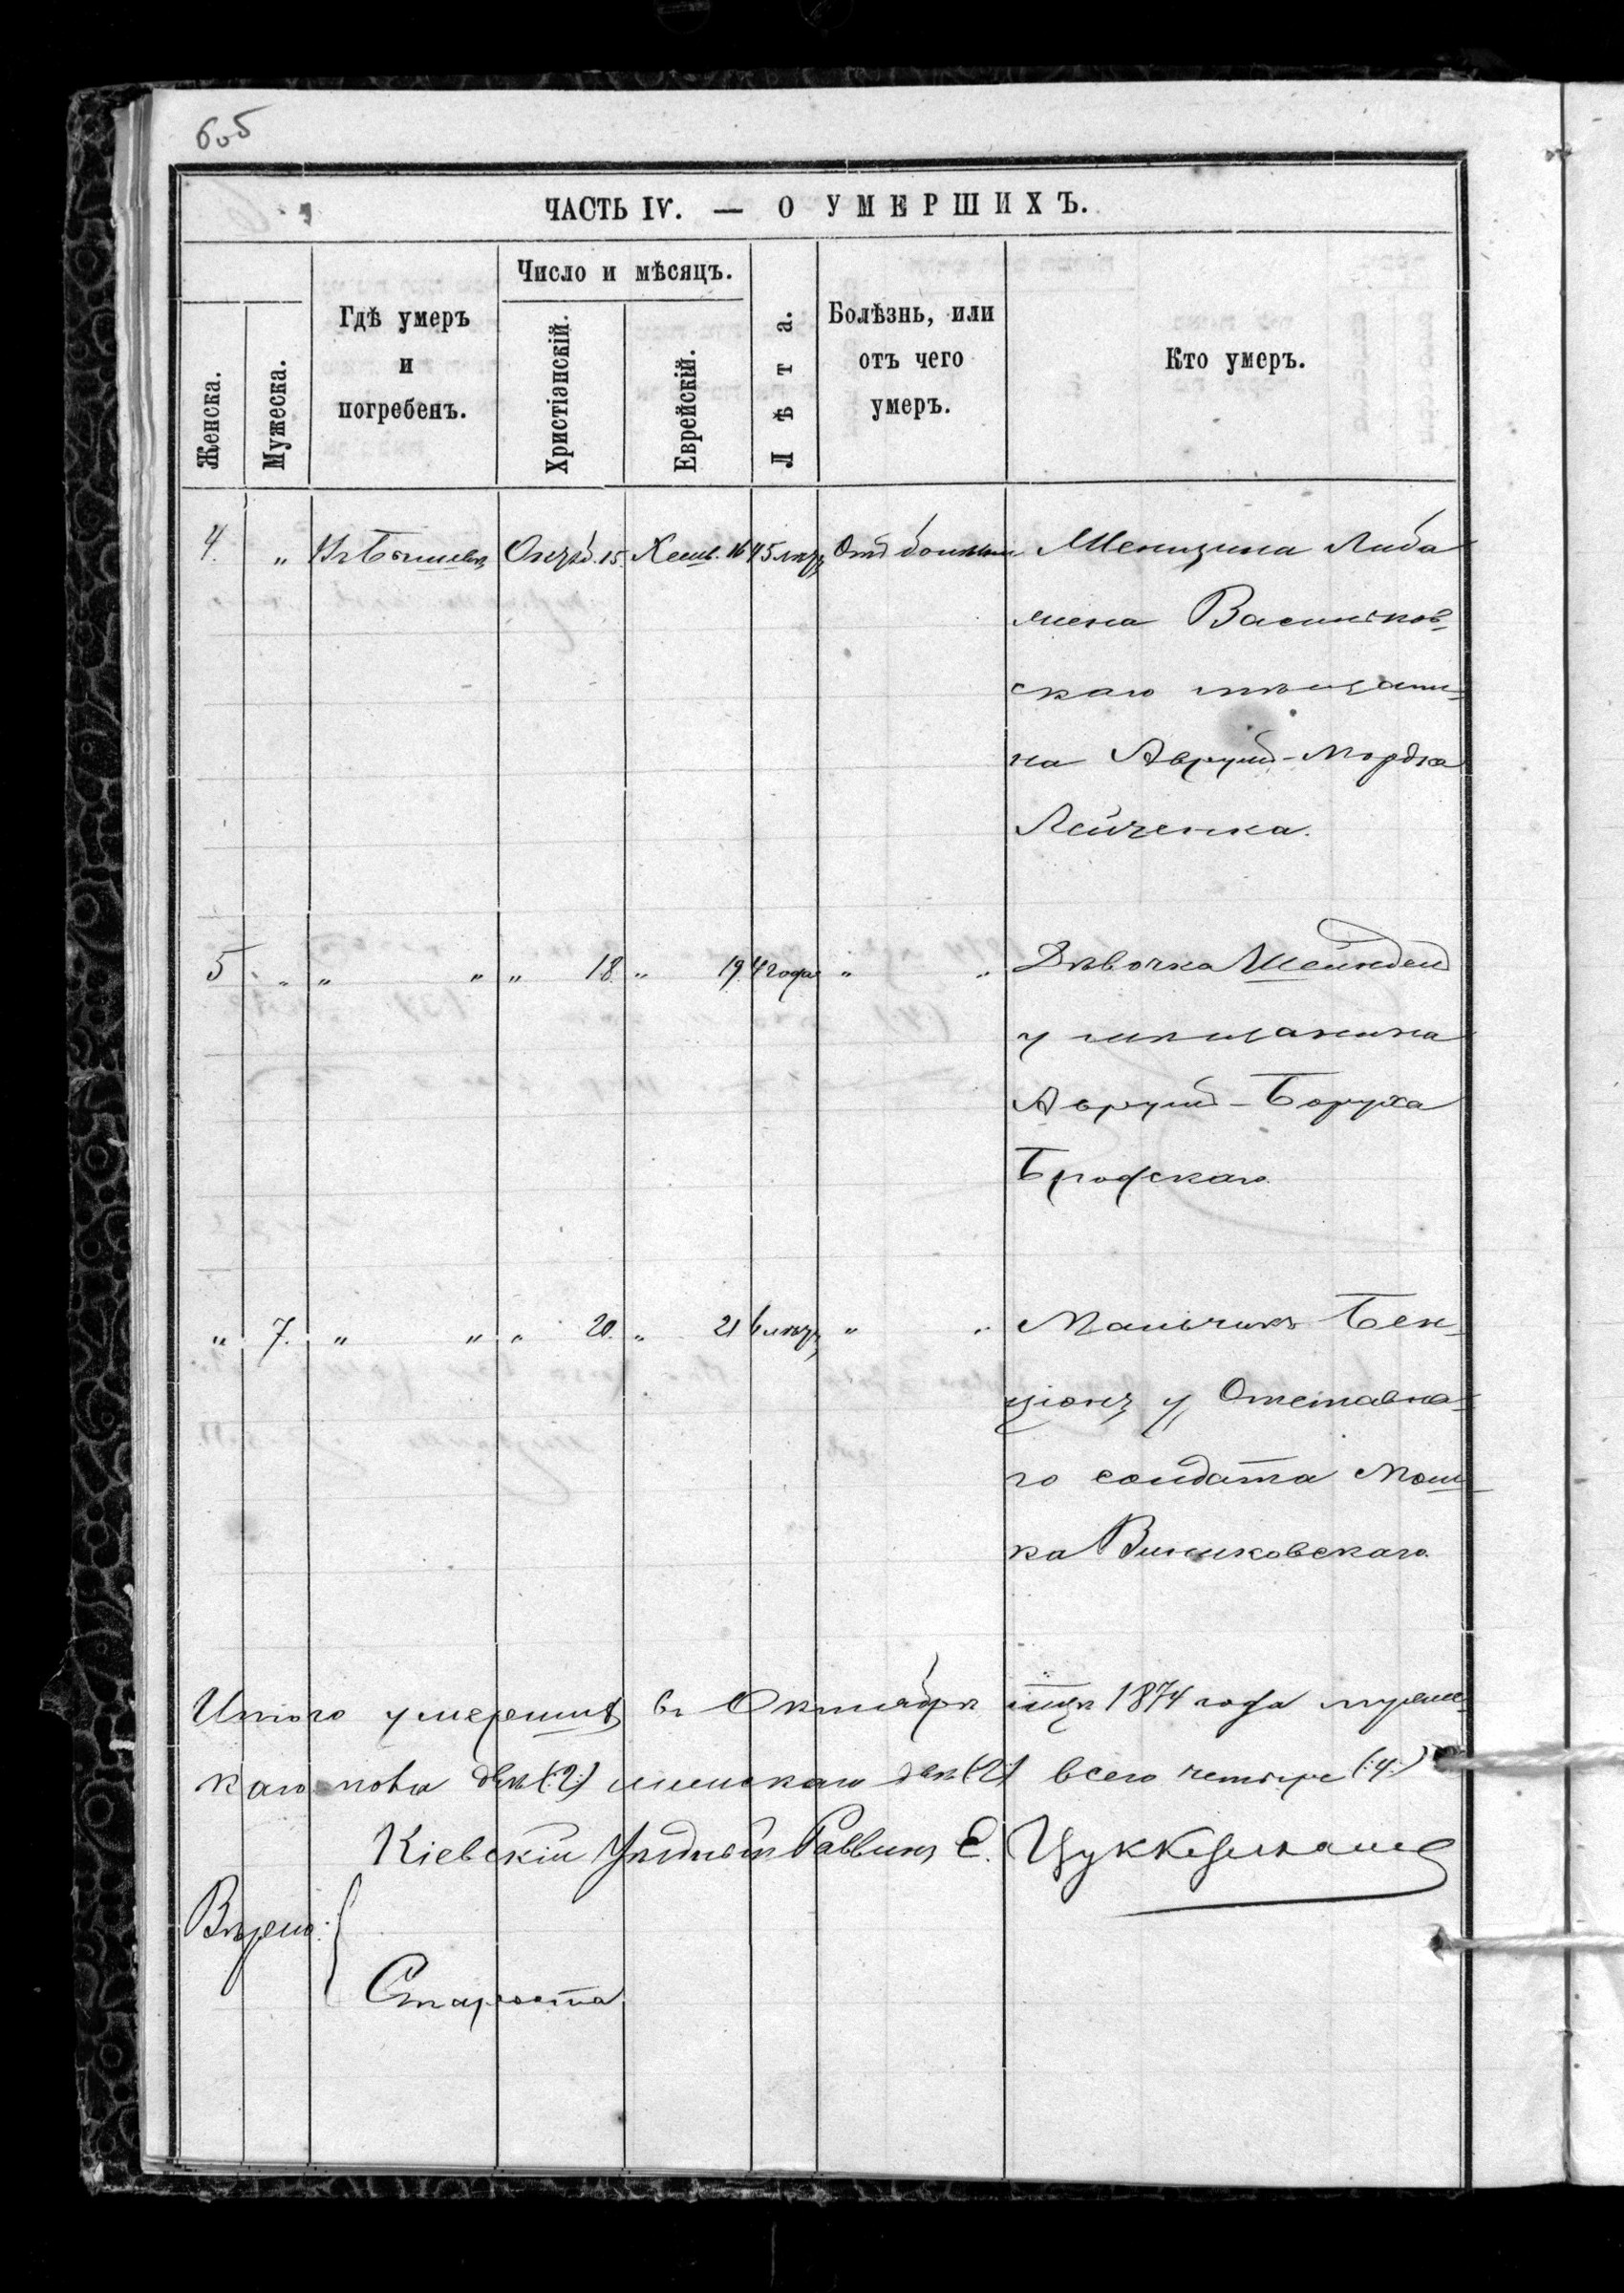 605
ЧАСТЬ IV. — О УМЕРШИХЪ.
Женска.
Мужеска.
Гдѣ умеръ
и
погребенъ.
Число и мѣсяцъ.
Христіанскій.
Еврейскій.
Лѣта.
Болѣзнь, или
отъ чего
умеръ.
Кто умеръ.
4. " Въ Бышевѣ Октяб. 15. Хешв. 16 45 лѣтъ Отъ Женщина Либа
жена Васильков-
скаго мѣщани-
на Аврумъ-Мордка
Лейченка.
5 " " " " 18. " 19. 4 года " " Дѣвочка Шейндель
у мѣщанина
Аврумъ-Боруха
Бродскаго.
" 7. " " " 20. " 21 лѣтъ " " Мальчикъ Бен-
ціонъ у Отставна-
го солдата Мош-
ка
Итого умершихъ въ Октябрѣ мцѣ 1874 года мужес-
каго пола два (:2:) женскаго двѣ (:2:) всего четыре (:4:)
Кіевскій Уѣздный Раввинъ Е. Цуккерманъ
Вѣрно: {
Староста